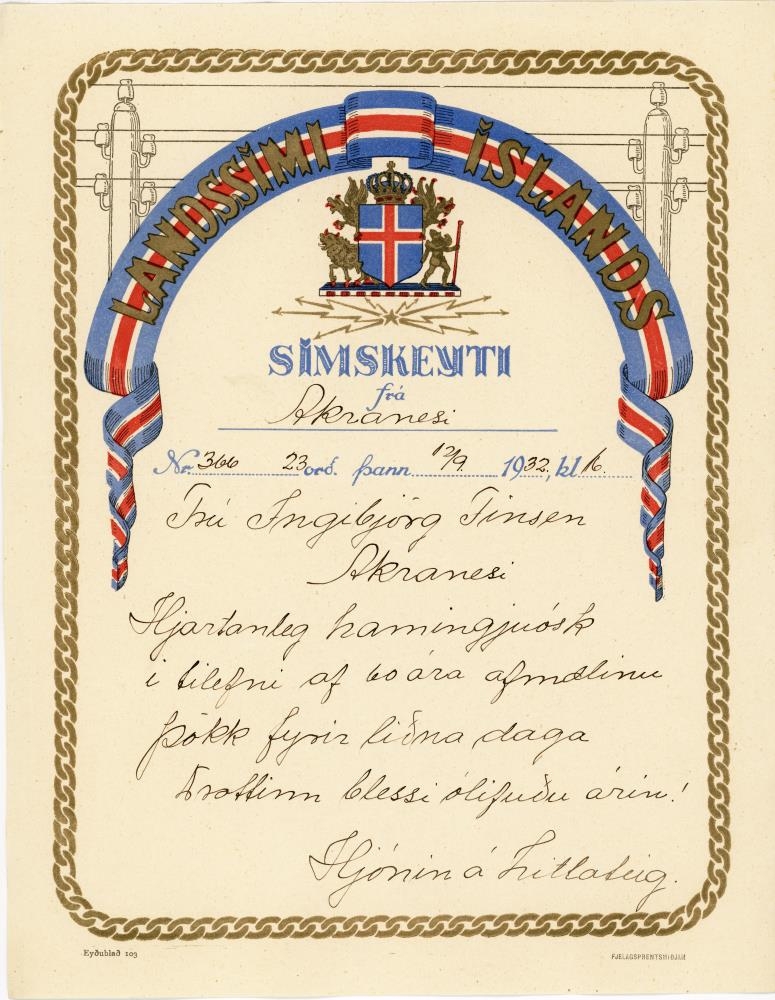 LANDSSÍMI ÍSLANDS
SÍMSKEYTI
frá
Akranesi
Nr. 366 23 orð. þann 12/9 1932, kl 16.
Frú Ingibjörg Finsen
Akranesi
Hjartanleg hamingjuósk
í tilefni af 60 ára afmælinu
Þökk fyrir liðna daga
Drottinn blessi ólifuðu árin!
Hjónin á Litlateig.
Eyðublað 103
FJELAGSPRENTSMIÐJAN